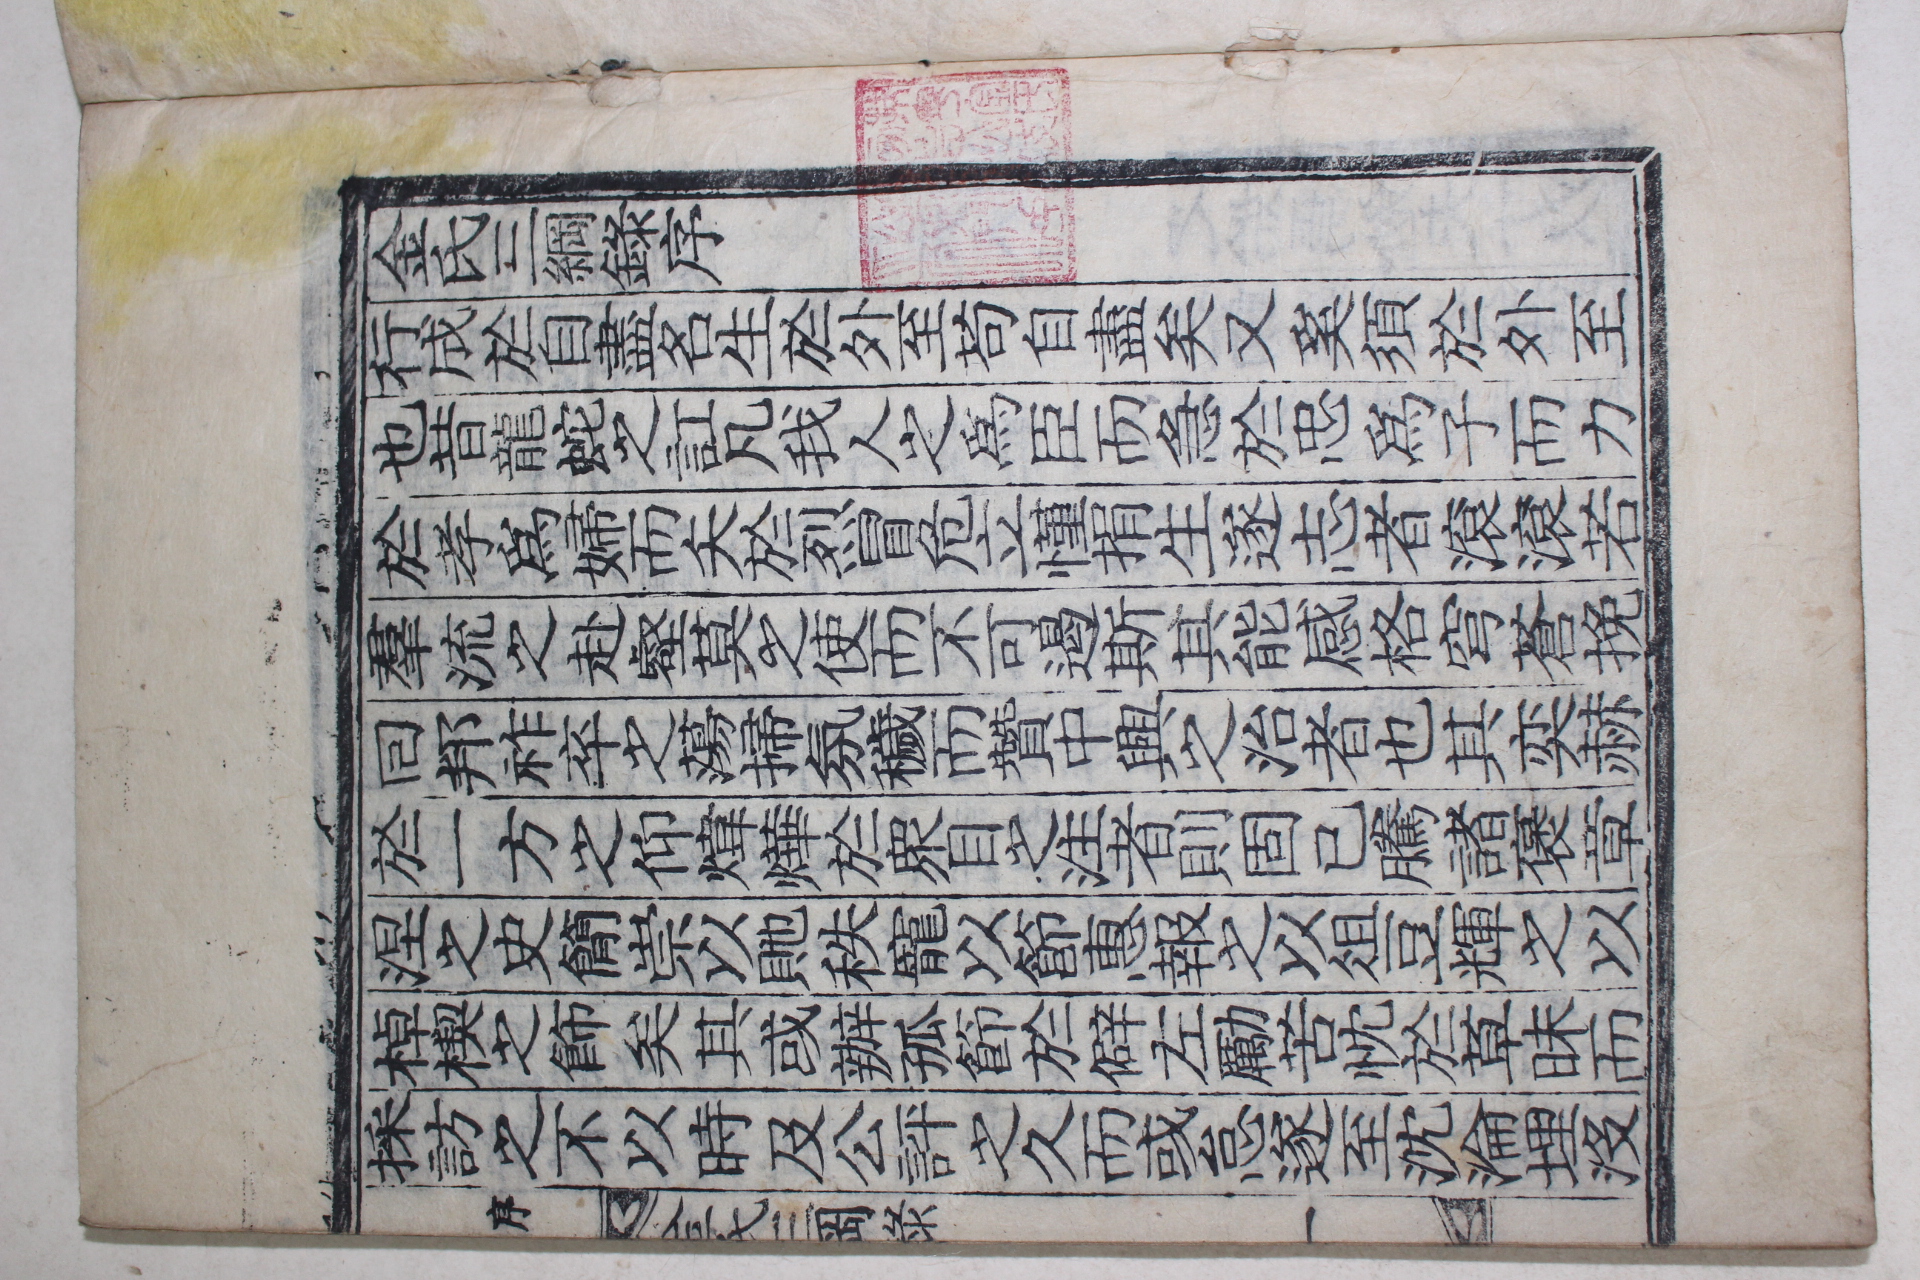 金氏三綱錄序
行成於自盡名生於外至苟自盡矣又奚須於外至
也昔龍蛇之訌凡我人之爲臣而急於忠爲子而力
於孝爲婦而夭於烈冒危立慬捐生遂志者滾滾若
羣流之赴壑莫之使而不可遏斯其能感格穹蒼挽
回邦祚卒之蕩掃氛穢而贊中興之治者也其奕赫
於一方之仰煒燁於衆目之注者則固已騰諸褒章
涅之史簡崇以貤秩寵以節惠報之以俎豆輝之以
棹楔之餙矣其或辦孤節於僻左勵苦忱於草昧而
採訪之不以時及公評之久而或怠遂至沈淪埋沒
序 金氏三岡錄 一